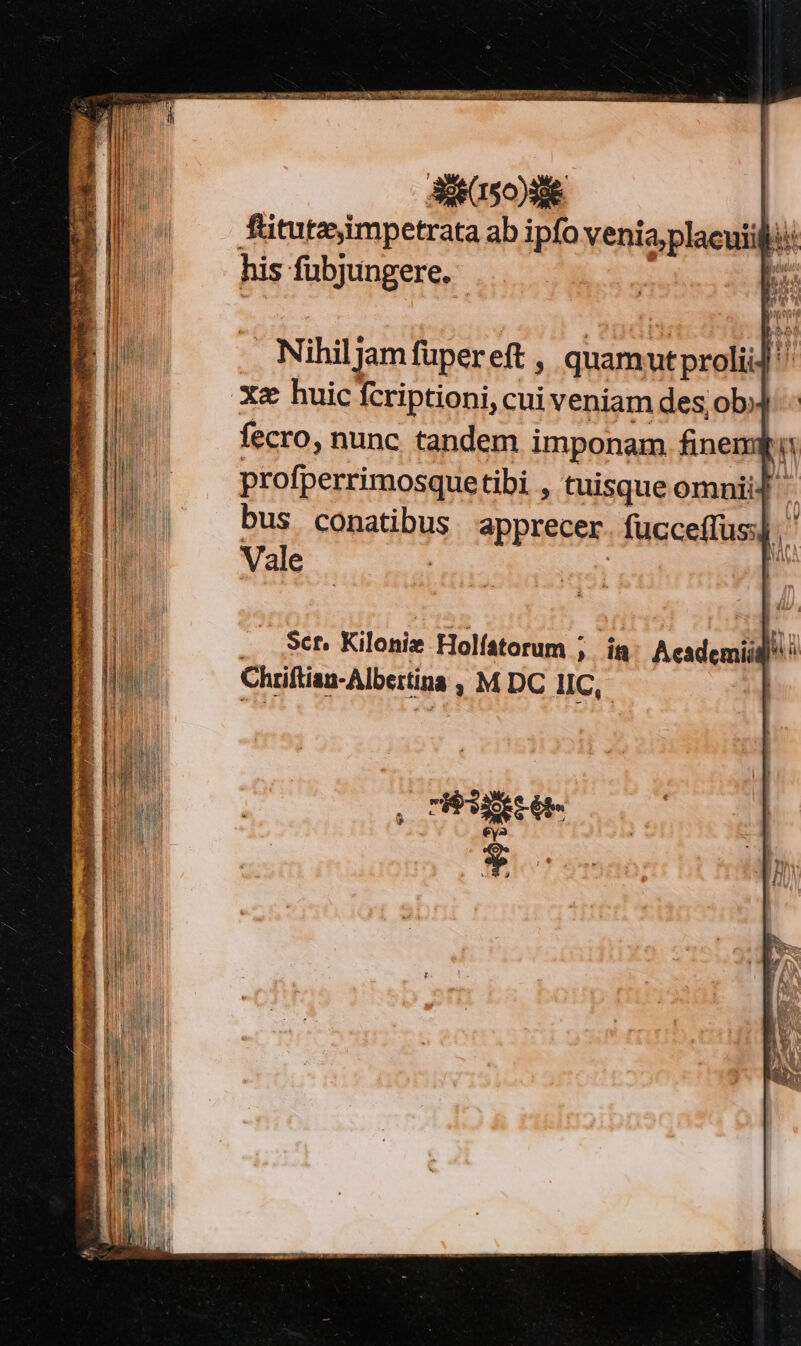 (150)
ſtitutæ, impetrata ab ipſo venia, placui
his ſubjungere.
Nihil jam ſuper eſt , quam ut proli
xæ huic ſcriptioni, cui veniam des, ob
ſecro, nunc tandem imponam finem
proſperrimosque tibi , tuisque omni
bus conatibus apprecer ſucceſſus
Vale
Scr. Kiloniæ Holſatorum ; in Academi
Chriſtian-Albertina , M DC IIC,